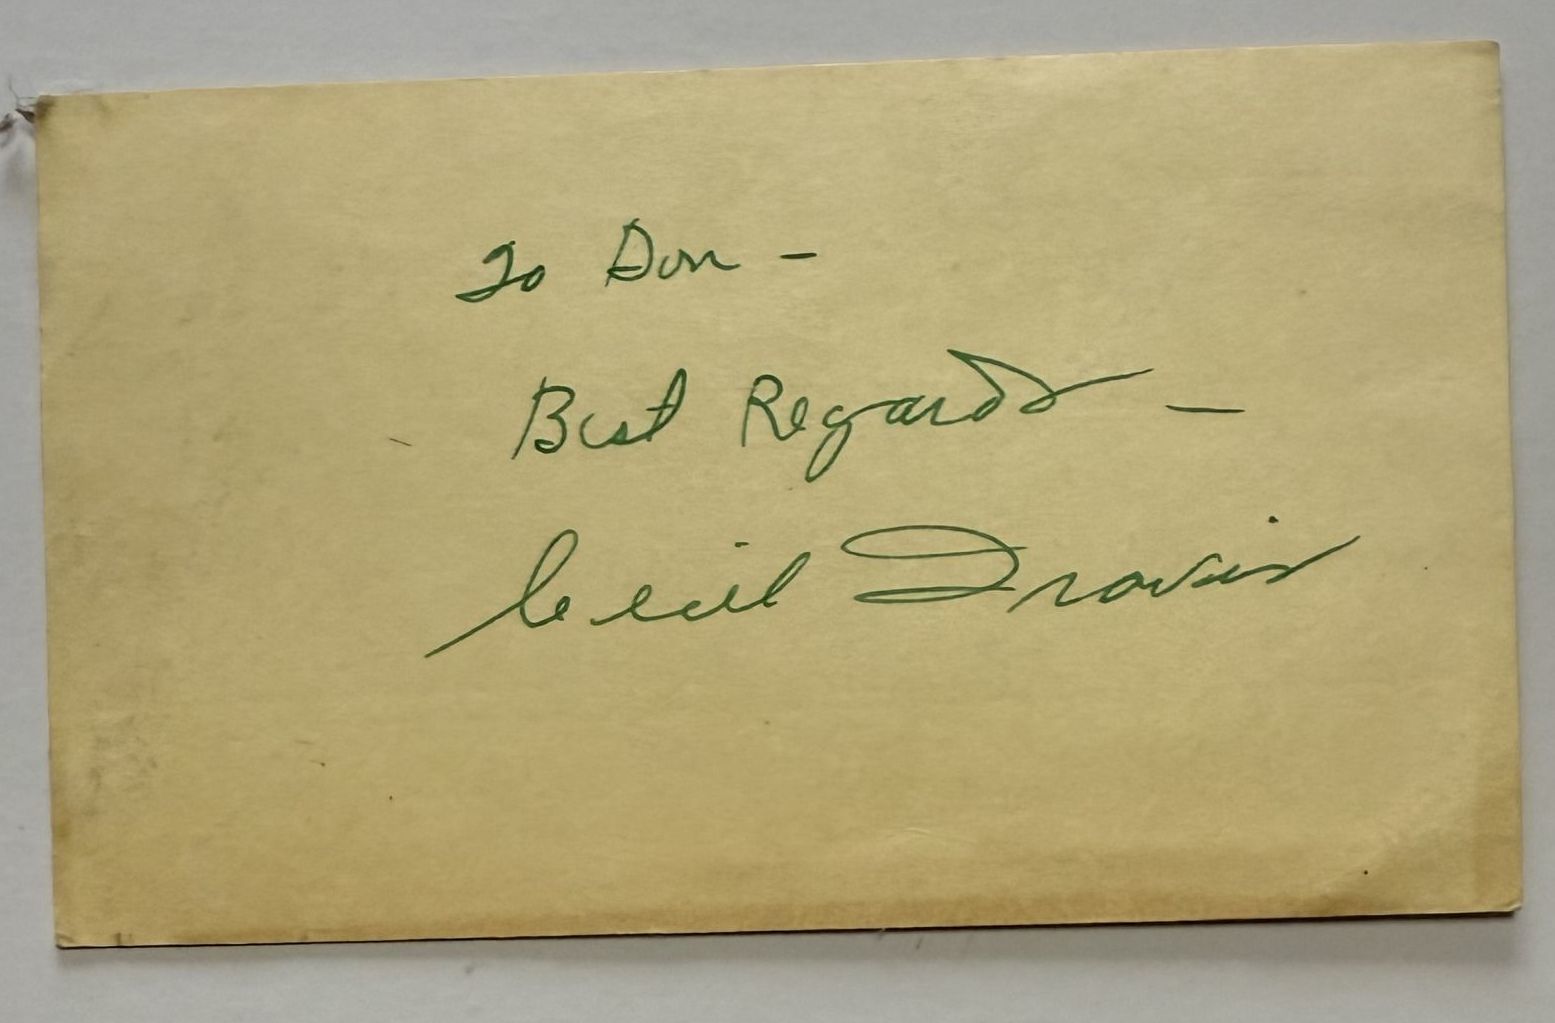 To Don -
Best Regards -
Cecil Travis